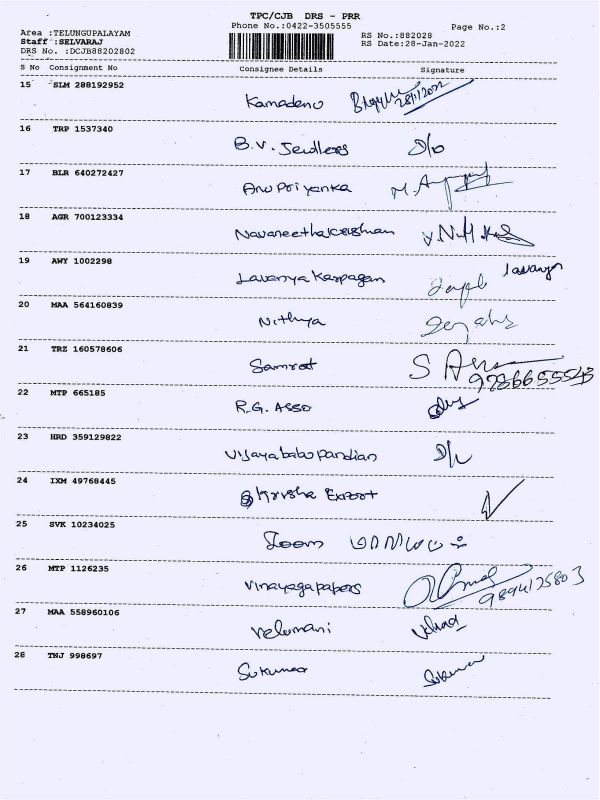 TPC/CJB DRS - PRR
Phone No.:0422-3505555 Page No.:2
Area :TELUNGUPALAYAM
Staff :SELVARAJ RS No.:882028
DRS No. :DCJB88202802 RS Date:28-Jan-2022
S No Consignment No Consignee Details Signature
15 SLM 288192952
Kamadenu 28/1/2022
16 TRP 1537340
B.V. Jewllers
17 BLR 640272427
Anu Priyanka
18 AGR 700123334
Navaneethakrishnan
19 AWY 1002298
Lavanya Karpagam Lavanya
20 MAA 564160839
Nithya
21 TRZ 160578606
Samrat
22 MTP 665185
R.G. Asso
23 HRD 359129822
Vijayababu Pandian
24 IXM 49768445
Krisha Export
25 SVK 10234025
Loom
26 MTP 1126235
Vinayaga papers 9894125803
27 MAA 558960106
Velumani
28 TNJ 998697
Sukumar Sukumar